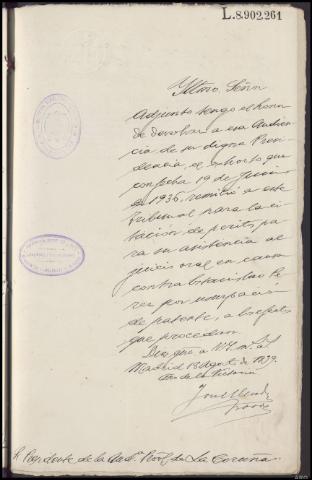 L.8.902.261
Iltmo. Señor
Adjunto tengo el honor
de devolver a esa Audien
cia de su digna Presi
dencia, el exhorto que
con fecha 19 de Junio
de 1936, remitió a este
Tribunal para la ci
tación de peritos pa
ra su asistencia al
juicio oral en causa
contra Pe
rez por usurpación
de patente, a los efectos
que procedan.
Dios gue a V.I. m. a.
Madrid 18 Agosto de 1939.
Año de la Victoria
José
Sr. Presidente de la Aud. Prov. de La Coruña